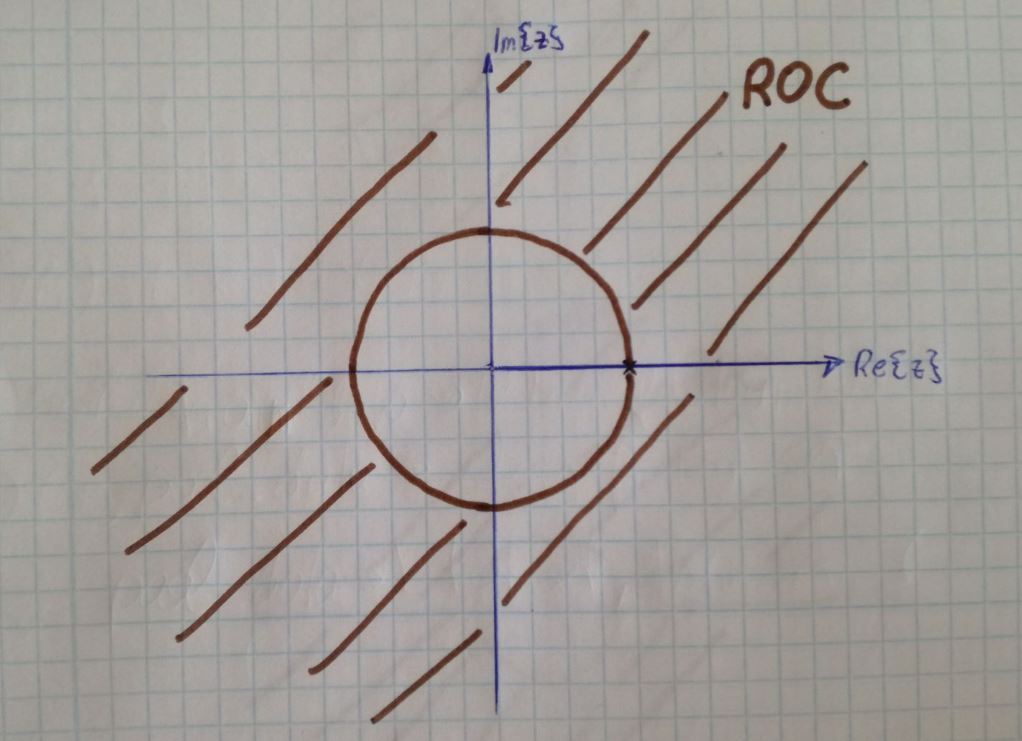 Im{z}
ROC
Re{z}